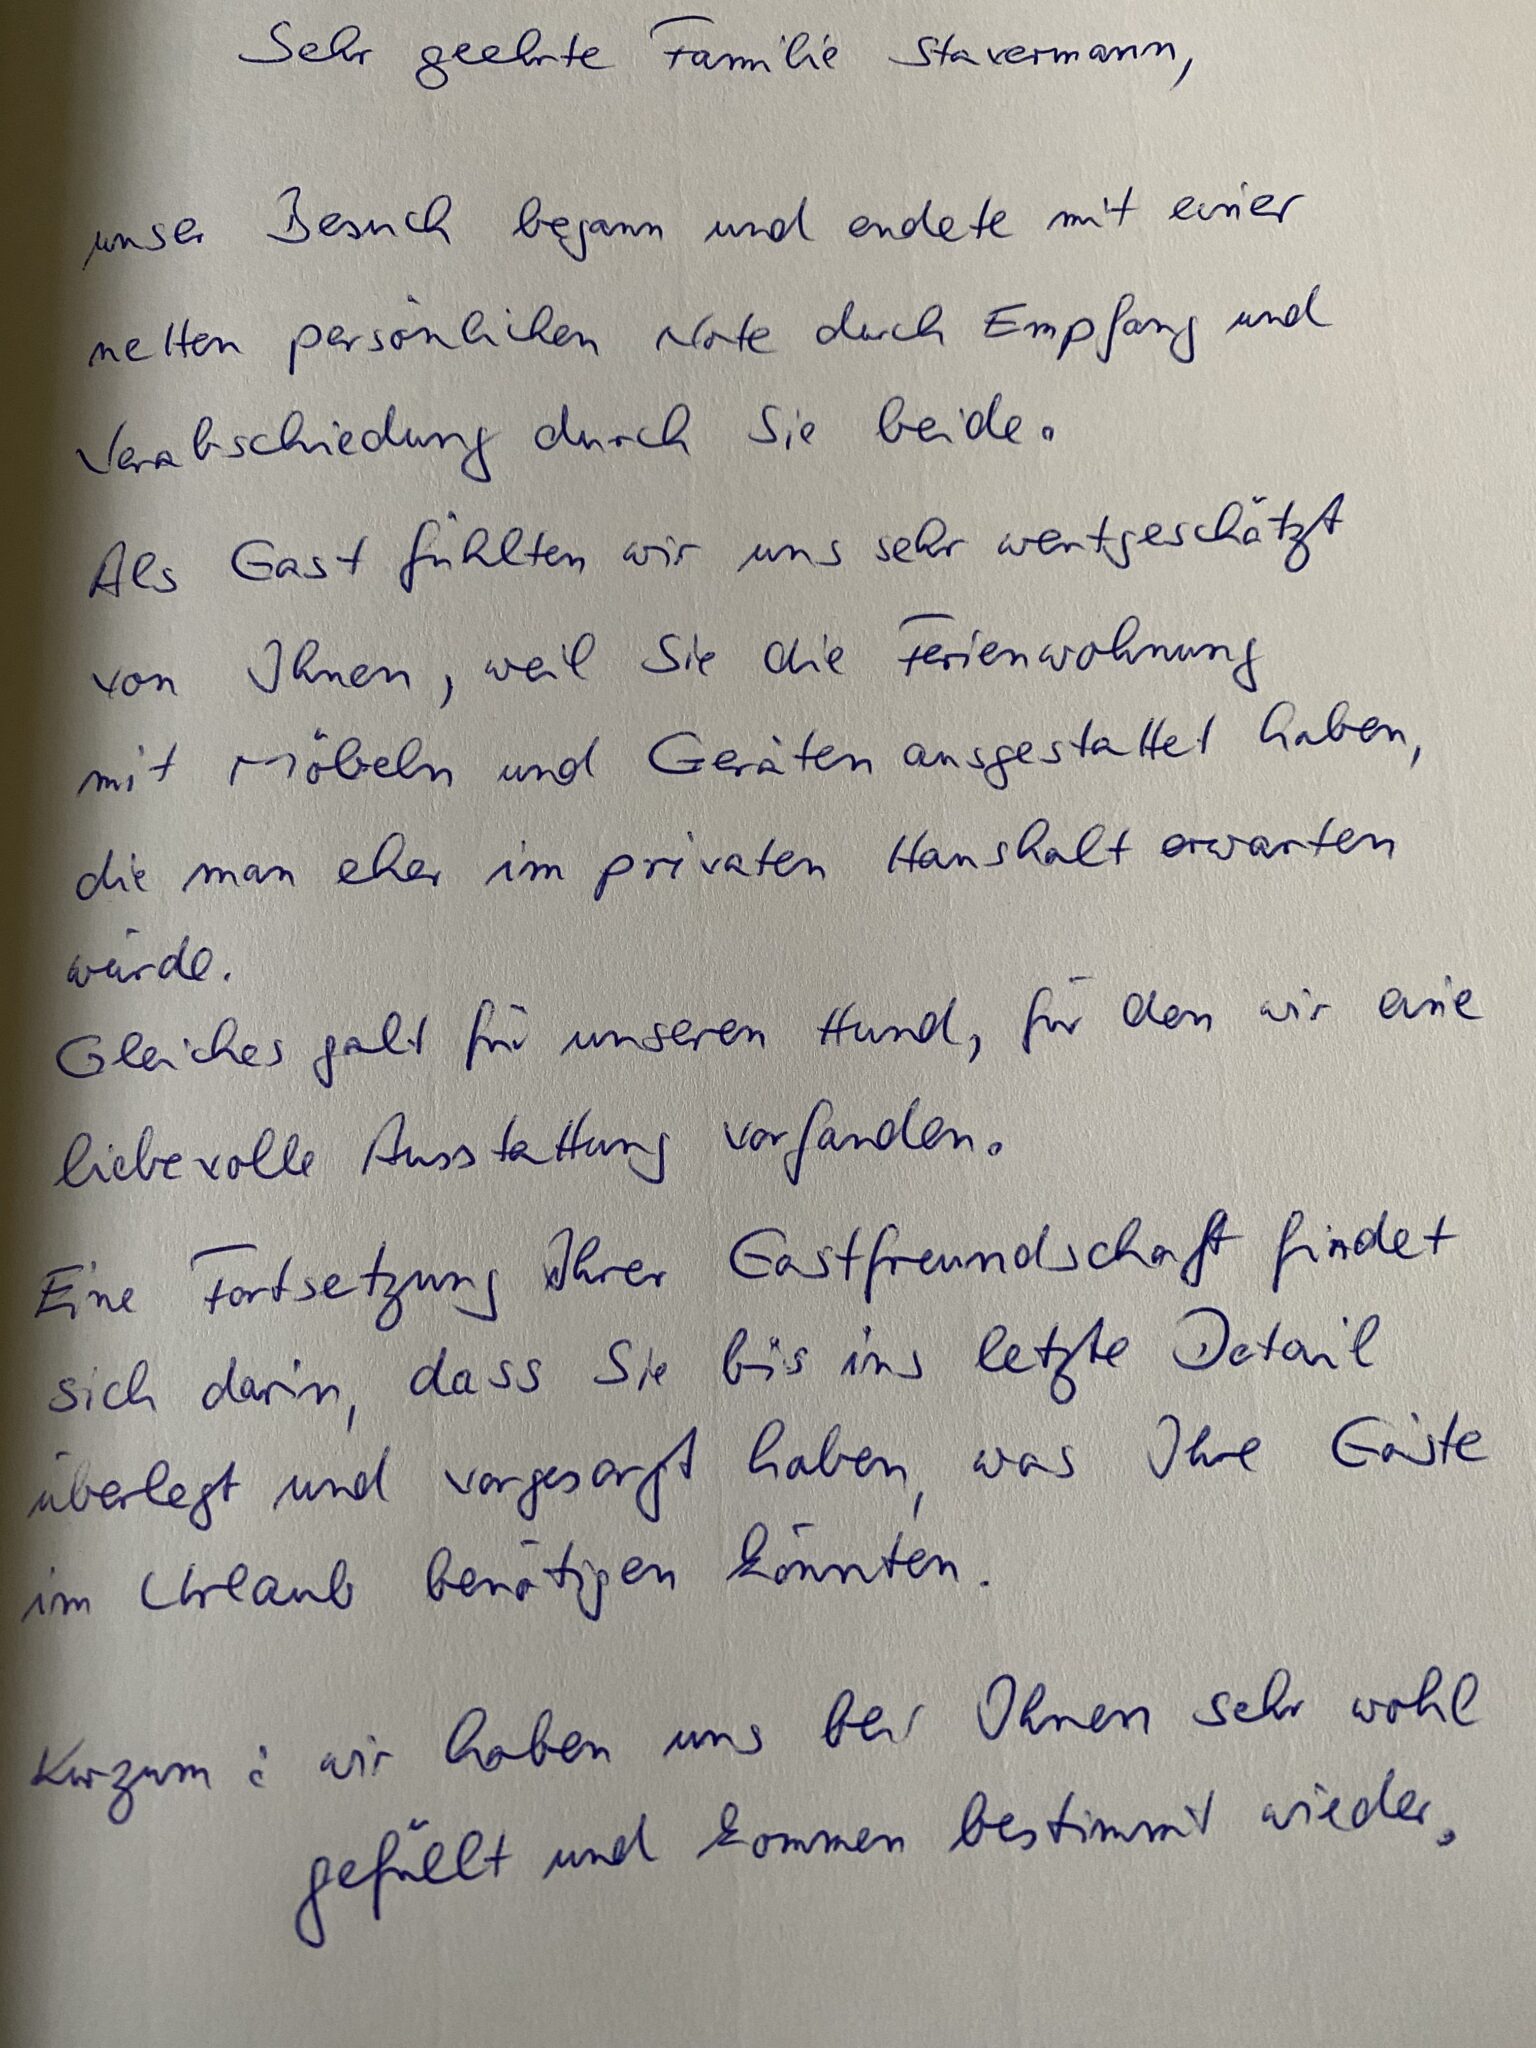 Sehr geehrte Familie Stavermann,
unser Besuch begann und endete mit einer
netten persönlichen Note durch Empfang und
Verabschiedung durch Sie beide.
Als Gast fühlten wir uns sehr wertgeschätzt
von Ihnen, weil Sie die Ferienwohnung
mit Möbeln und Geräten ausgestattet haben,
die man eher im privaten Haushalt erwarten
würde.
Gleiches galt für unseren Hund, für den wir eine
liebevolle Ausstattung vorfanden.
Eine Fortsetzung Ihrer Gastfreundschaft findet
sich darin, dass Sie bis ins letzte Detail
überlegt und vorgesorgt haben, was Ihre Gäste
im Urlaub benötigen könnten.
Kurzum: wir haben uns bei Ihnen sehr wohl
gefüllt und kommen bestimmt wieder.